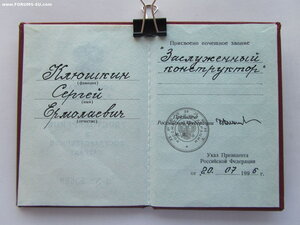 www.FORUMS-SU.com
Клюшкин
(фамилия)
Сергей
(имя)
Ермолаевич
(отчество)
Присвоено почетное звание
"Заслуженный
конструктор"
Президент
Российской Федерации
Указ Президента
Российской Федерации
от "20" 07 1996 г.